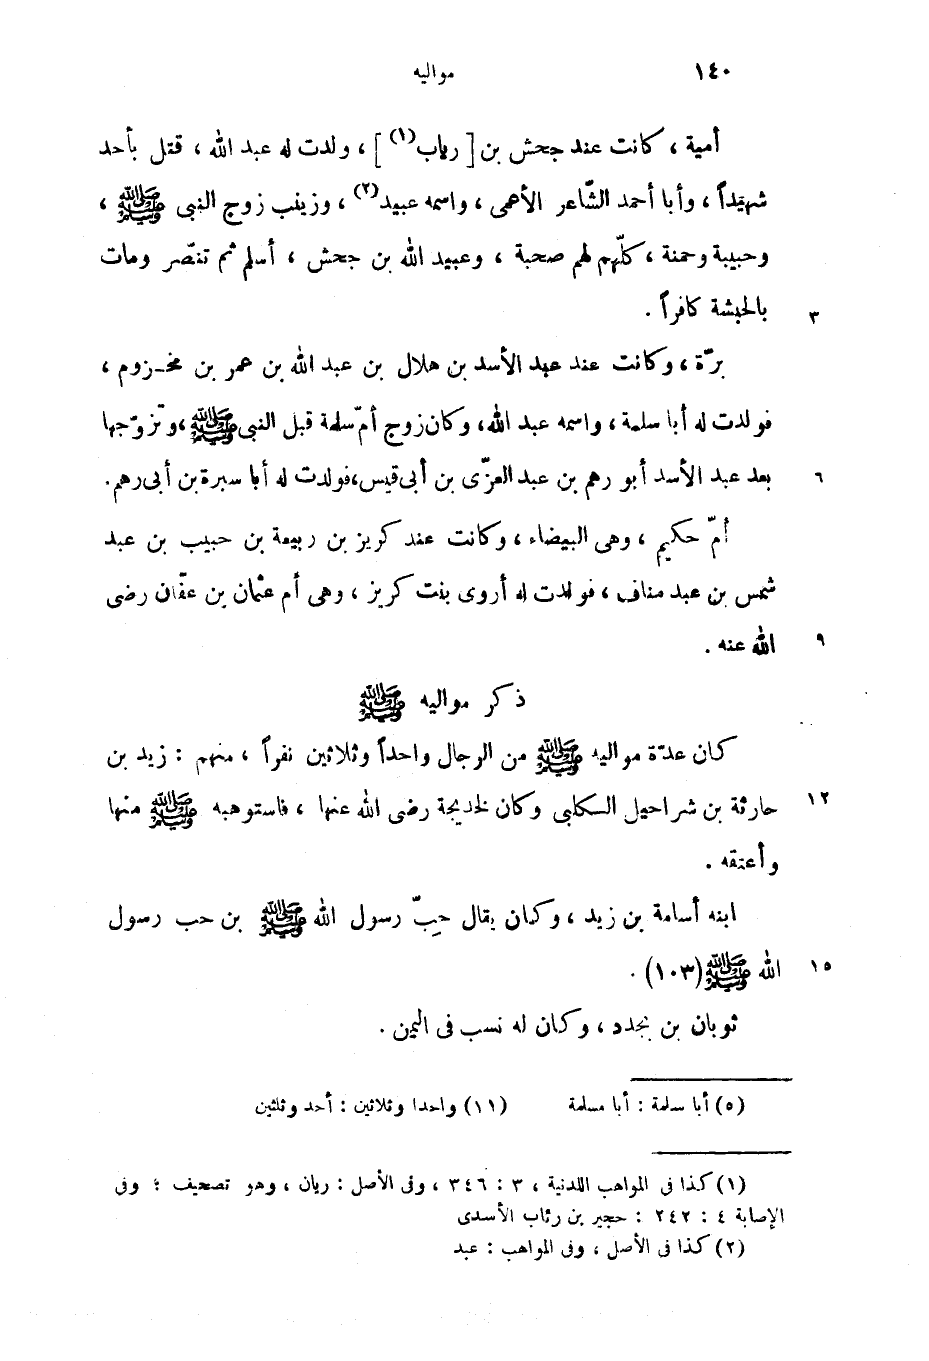 ١٤٠ مواليه
أمية ، كانت عند جحش بن [ رياب(١) ] ، ولدت له عبد الله ، قتل بأحد
شهيداً ، وأبا أحمد الشّاعر الأعمى ، واسمه عبيد(٢) ، وزينب زوج النبى ﷺ ،
وحبيبة وحمنة ، كلّهم لهم صحبة ، وعبيد الله بن جحش ، أسلم ثم تنصّر ومات
٣ بالحبشة كافراً .
برّة ، وكانت عند عبد الأسد بن هلال بن عبد الله بن عمر بن مخـزوم ،
فولدت له أبا سلمة ، واسمه عبد الله، وكان زوج أمّ سلمة قبل النبى ﷺ ،وتزوّجها
٦ بعد عبد الأسد أبو رهم بن عبد العزّى بن أبى قيس،فولدت له أبا سبرة بن أبى رهم.
أمّ حكيم ، وهى البيضاء ، وكانت عند كريز بن ربيعة بن حبيب بن عبد
شمس بن عبد مناف ، فولدت له أروى بنت كريز ، وهى أم عثمان بن عفّان رضى
٩ الله عنه .
ذكر مواليه ﷺ
كان عدّة مواليه ﷺ من الرجال واحداً وثلاثين نفراً ، منهم : زيد بن
١٢ حارثة بن شراحيل الكلبى وكان لخديجة رضى الله عنها ، فاستوهبه ﷺ منها
وأعتقه .
ابنه أسامة بن زيد ، وكان يقال حِبّ رسول الله ﷺ بن حب رسول
١٥ الله ﷺ (١٠٣) .
ثوبان بن بجدد ، وكان له نسب فى اليمن .
(٥) أبا سلمة : أبا مسلمة (١١) واحدا وثلاثين : أحد وثلثين
(١) كذا فى المواهب اللدنية ، ٣ : ٣٤٦ ، وفى الأصل : ريان ، وهو تصحيف ؛ وفى
الإصابة ٤ : ٢٤٢ : حجير بن رئاب الأسدى
(٢) كذا فى الأصل ، وفى المواهب : عبد